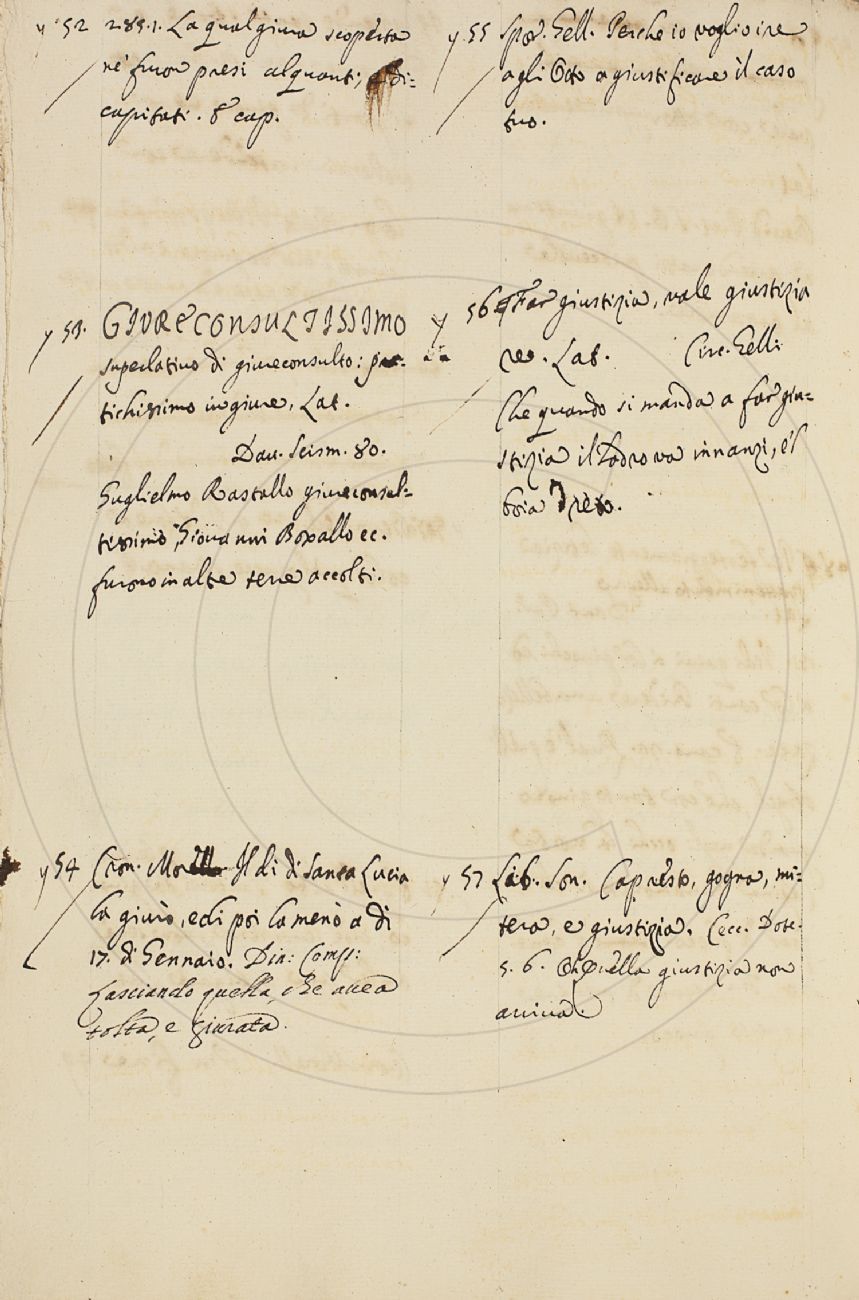 y 52 2.85.1. La qual giura scoperta
ne furon presi alquanti, e di=
capitati. E cap.
y 53. GIURECONSULTISSIMO
superlativo di giureconsulto:
tichissimo in giure, Lat.
Dav. Scism. 80.
Guglielmo Rastallo giureconsul=
tissimo, Giovanni Boxallo ec.
furono in altre terre accolti.
y 54 Cron. Morell. Il dì di Santa Lucia
la giurò, e di poi la menò a dì
17. di Gennaio. Din: Comp:
lasciando quella, che avea
tolta, e giurata.
y 55 Spor. Gell. Perche io voglio ire
agli Otto a giustificare il caso
tuo.
y 56 Far giustizia, vale giustizia
re. Lat. Circ. Gell:
Che quando si manda a far giu=
stizia il ladro va innanzi, e 'l
boia dreto.
y 57 Lib. Son. Capresto, gogna, mi=
tera, e giustizia. Cecc. Dote.
5. 6. Quella giustizia non
arriva.